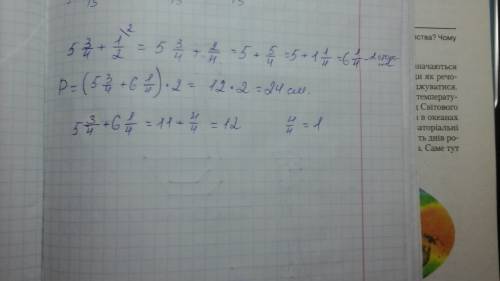 15 15 15
5 3/4 + 1/2 \2 = 5 3/4 + 2/4 = 5 + 5/4 = 5 + 1 1/4 = 6 1/4 -
P = (5 3/4 + 6 1/4) · 2 = 12 · 2 = 24 см.
5 3/4 + 6 1/4 = 11 + 4/4 = 12 4/4 = 1
ства? Чому
значаються
ди як речо-
джуватися.
температу-
д Світового
а в океанах
ваторіальні
ть днів ро-
. Саме тут